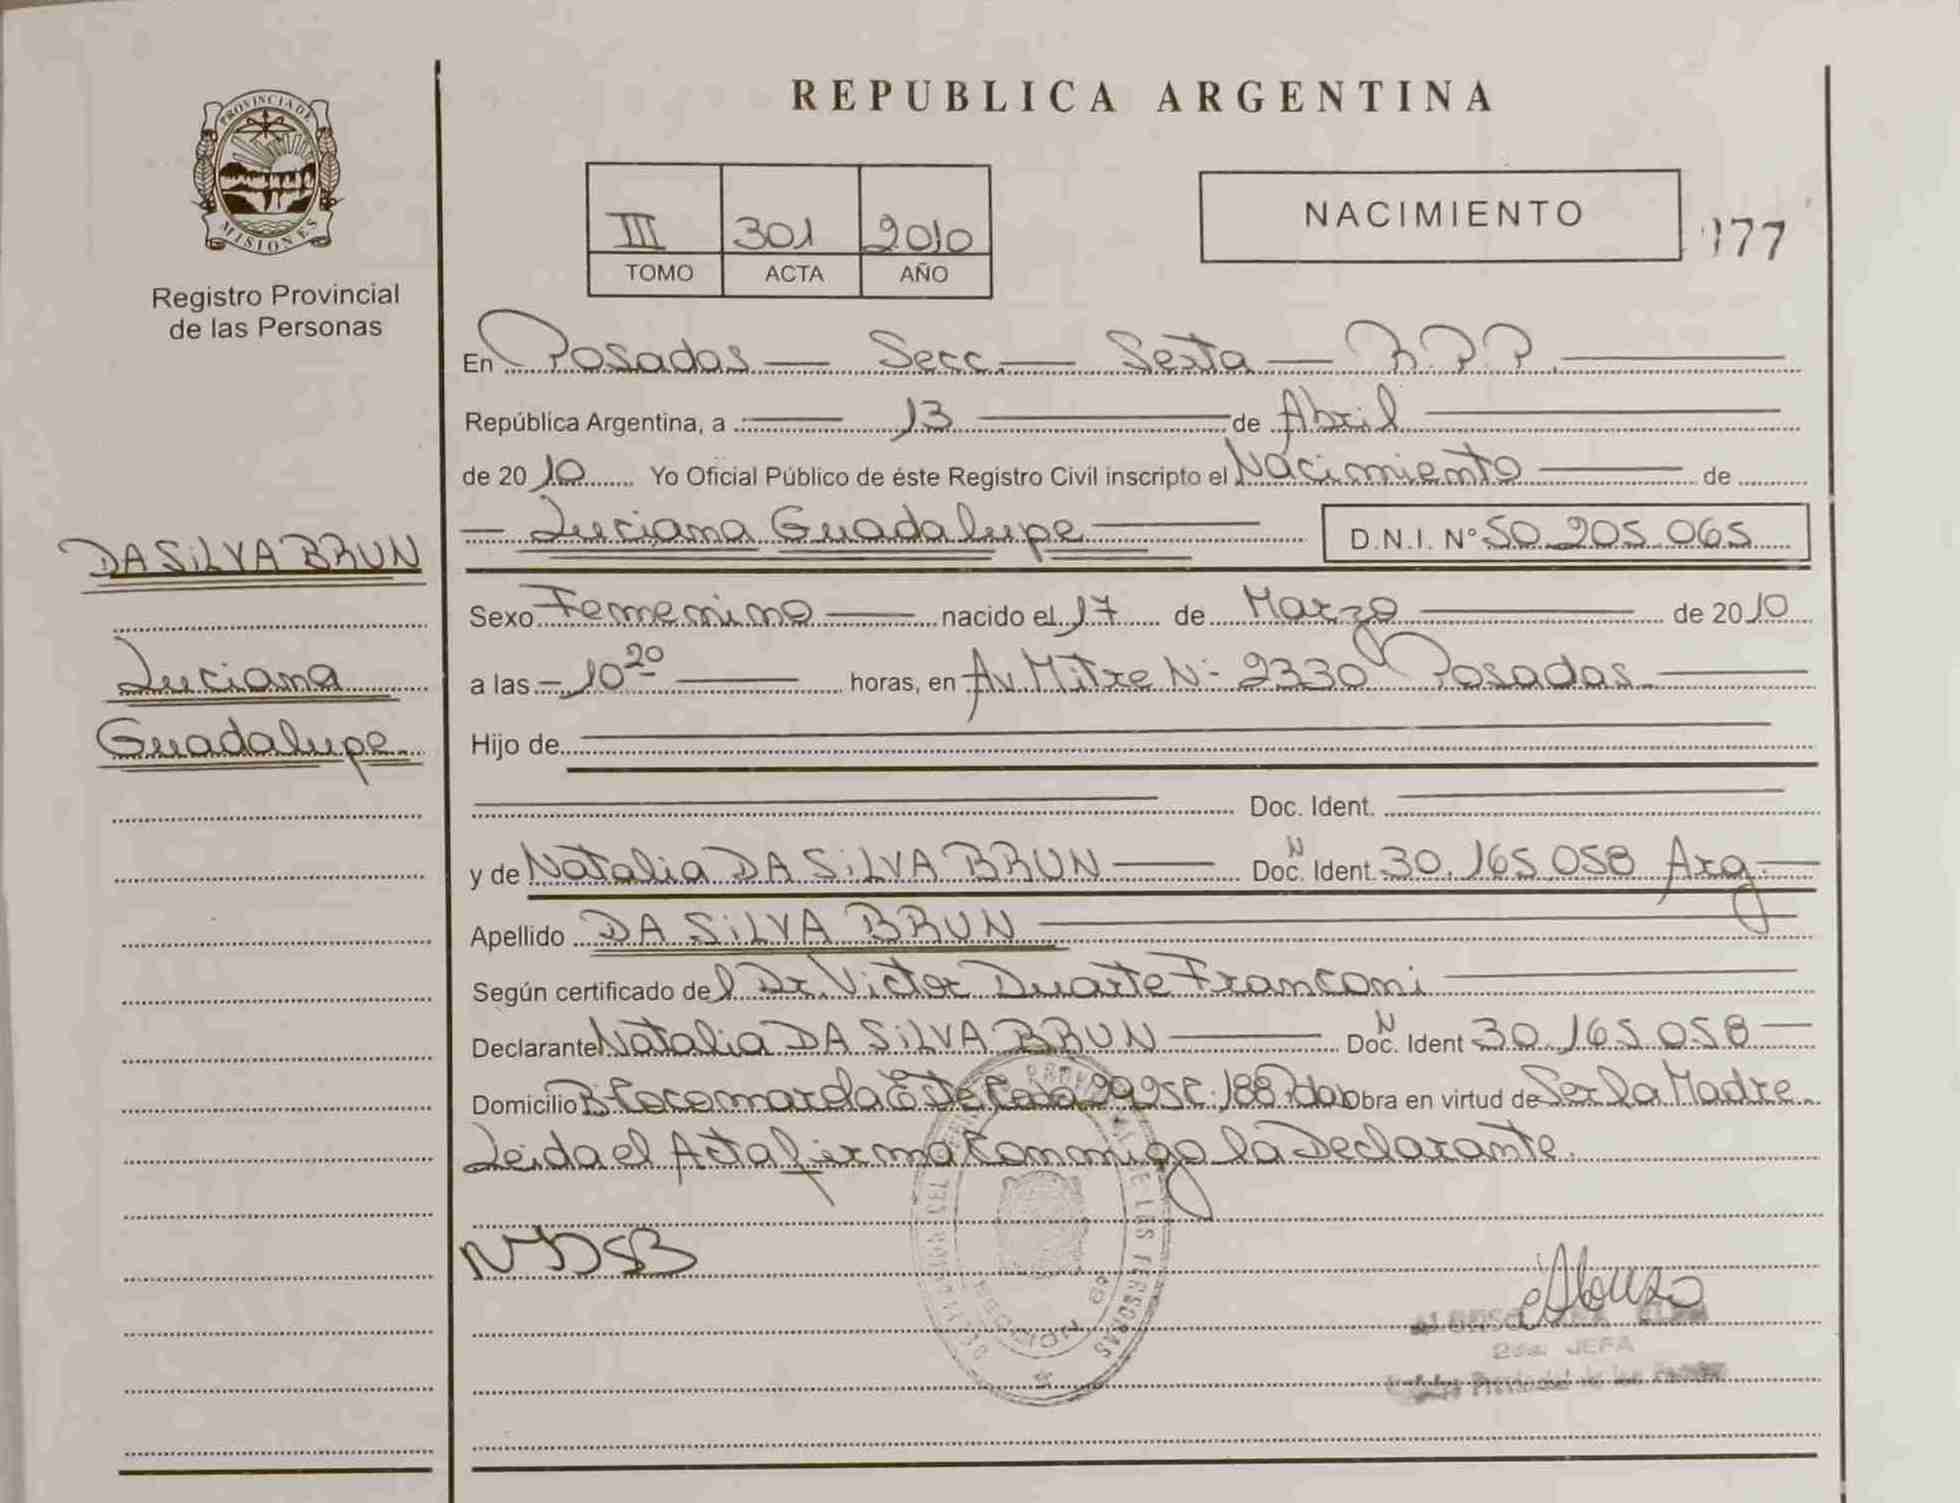 PROVINCIA DE
MISIONES
Registro Provincial
de las Personas
DA SILVA BRUN
Luciana
Guadalupe
REPUBLICA ARGENTINA
III 301 2010
TOMO ACTA AÑO
NACIMIENTO
177
En Posadas — Secc. — Sexta — R.P.P.
República Argentina, a 13 de Abril
de 2010 Yo Oficial Público de éste Registro Civil inscripto el Nacimiento de
Luciana Guadalupe D.N.I. N° 50.205.065
Sexo Femenino nacido el 17 de Marzo de 2010
a las 10 20 horas, en Av. Mitre N° 2330 Posadas
Hijo de
Doc. Ident.
y de Natalia DA SILVA BRUN Doc. N Ident. 30.165.058 Arg.
Apellido DA SILVA BRUN
Según certificado del Dr. Victor Duarte Franconi
Declarante Natalia DA SILVA BRUN Doc. N Ident 30.165.058
Domicilio obra en virtud de Ser la Madre
Leida el Acta firma Conmigo la Declarante.
NDSB
Alonso
2da. JEFA